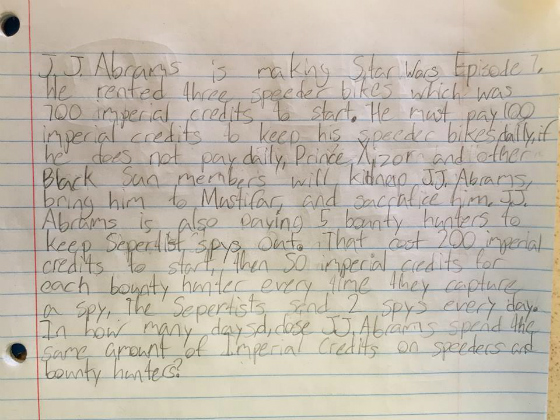 J.J. Abrams is making Star Wars Episode 7.
He rented three speeder bikes which was
700 imperial credits to start. He must pay 100
imperial credits to keep his speeder bikes daily, if
he does not pay daily, Prince Xizor and other
Black Sun members will kidnap J.J. Abrams,
bring him to Mustifar, and sacrafice him. J.J.
Abrams is also paying 5 bounty hunters to
keep Sepertist spys out. That cost 200 imperial
credits to start, then 50 imperial credits for
each bounty hunter every time they capture
a spy. The Sepertists send 2 spys every day.
In how many days dose J.J. Abrams spend the
same amount of Imperial Credits on speeders and
bounty hunters?